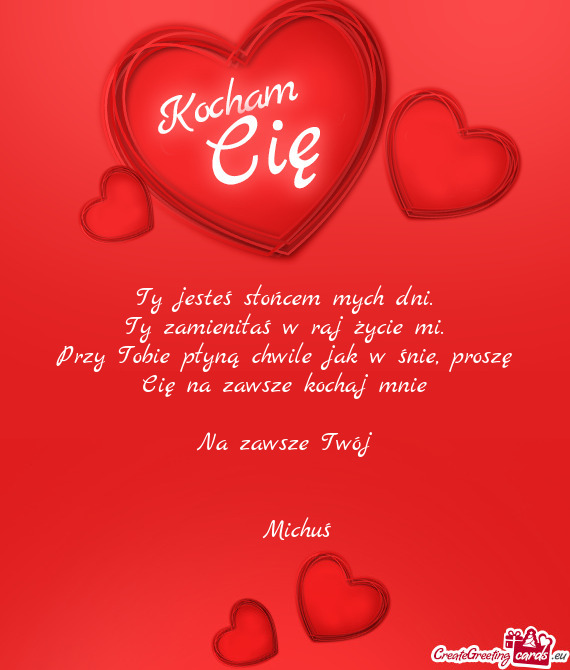 Kocham
Cię
Ty jesteś słońcem mych dni.
Ty zamieniłaś w raj życie mi.
Przy Tobie płyną chwile jak w śnie, proszę
Cię na zawsze kochaj mnie
Na zawsze Twój
Michuś
CreateGreeting cards .eu